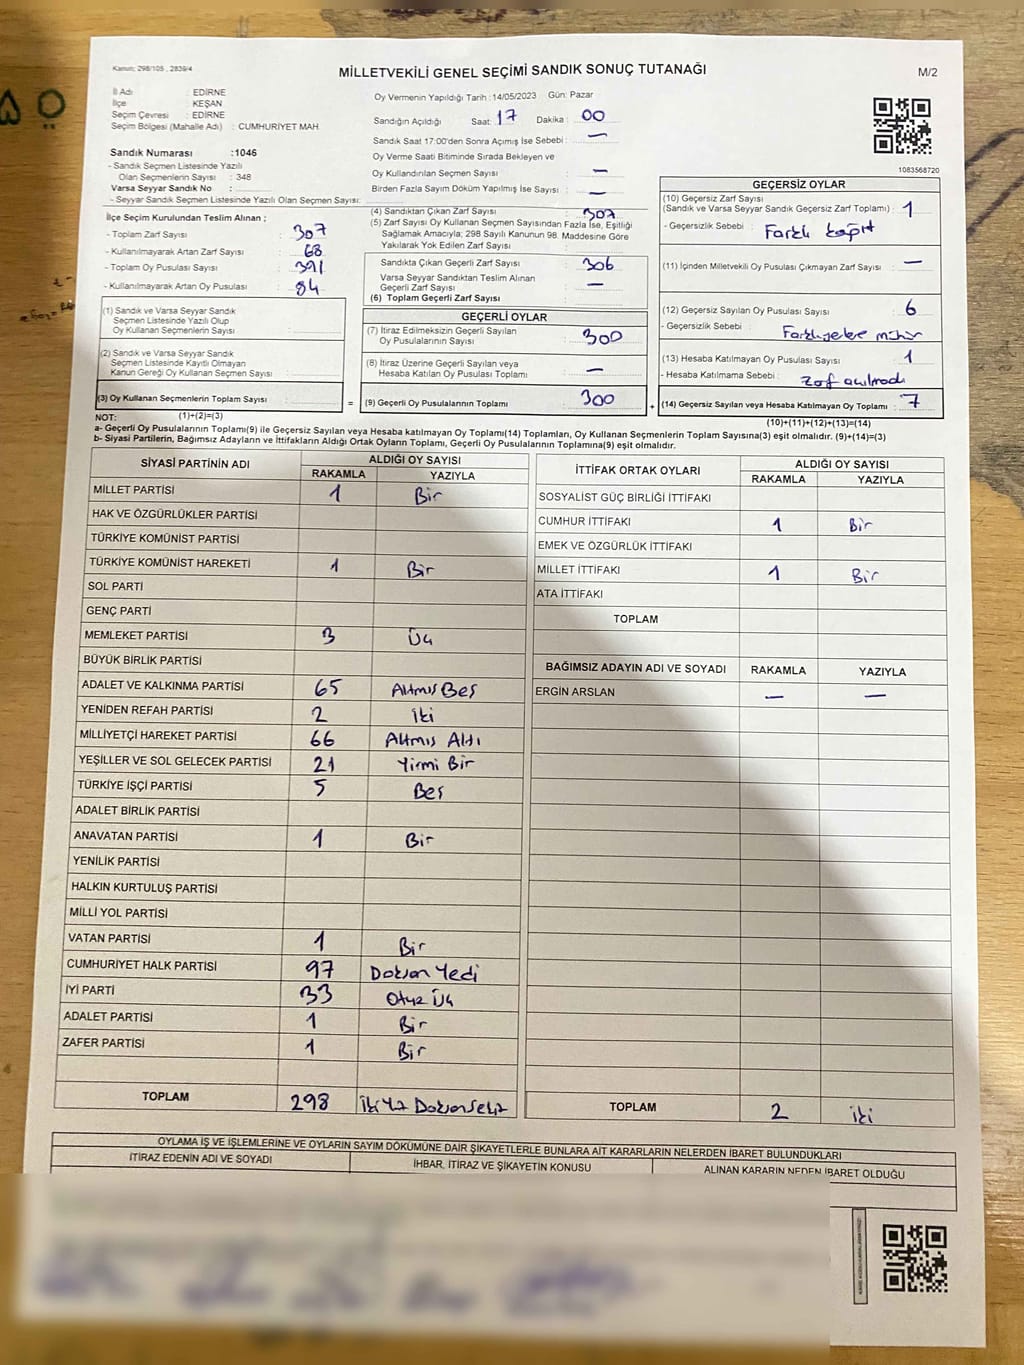 Kanun: 298/105 , 2839/4
MİLLETVEKİLİ GENEL SEÇİMİ SANDIK SONUÇ TUTANAĞI
M/2
İl Adı : EDİRNE
İlçe : KEŞAN
Seçim Çevresi : EDİRNE
Seçim Bölgesi (Mahalle Adı) : CUMHURİYET MAH.
Sandık Numarası :1046
- Sandık Seçmen Listesinde Yazılı
Olan Seçmenlerin Sayısı : 348
Varsa Seyyar Sandık No :
- Seyyar Sandık Seçmen Listesinde Yazılı Olan Seçmen Sayısı:
Oy Vermenin Yapıldığı Tarih :14/05/2023 Gün: Pazar
Sandığın Açıldığı Saat: 17 Dakika : 00
Sandık Saat 17:00'den Sonra Açımış İse Sebebi : —
Oy Verme Saati Bitiminde Sırada Bekleyen ve
Oy Kullandırılan Seçmen Sayısı : —
Birden Fazla Sayım Döküm Yapılmış İse Sayısı : —
1083568720
İlçe Seçim Kurulundan Teslim Alınan ;
- Toplam Zarf Sayısı : 307
- Kullanılmayarak Artan Zarf Sayısı : 68
- Toplam Oy Pusulası Sayısı : 391
- Kullanılmayarak Artan Oy Pusulası : 84
(1) Sandık ve Varsa Seyyar Sandık
Seçmen Listesinde Yazılı Olup
Oy Kullanan Seçmenlerin Sayısı :
(2) Sandık ve Varsa Seyyar Sandık
Seçmen Listesinde Kayıtlı Olmayan
Kanun Gereği Oy Kullanan Seçmen Sayısı :
(3) Oy Kullanan Seçmenlerin Toplam Sayısı :
(1)+(2)=(3)
(4) Sandıktan Çıkan Zarf Sayısı : 307
(5) Zarf Sayısı Oy Kullanan Seçmen Sayısından Fazla İse, Eşitliği
Sağlamak Amacıyla; 298 Sayılı Kanunun 98. Maddesine Göre
Yakılarak Yok Edilen Zarf Sayısı :
Sandıkta Çıkan Geçerli Zarf Sayısı : 306
Varsa Seyyar Sandıktan Teslim Alınan
Geçerli Zarf Sayısı : —
(6) Toplam Geçerli Zarf Sayısı :
GEÇERLİ OYLAR
(7) İtiraz Edilmeksizin Geçerli Sayılan
Oy Pusulalarının Sayısı : 300
(8) İtiraz Üzerine Geçerli Sayılan veya
Hesaba Katılan Oy Pusulası Toplamı : —
= (9) Geçerli Oy Pusulalarının Toplamı : 300 +
GEÇERSİZ OYLAR
(10) Geçersiz Zarf Sayısı
(Sandık ve Varsa Seyyar Sandık Geçersiz Zarf Toplamı) : 1
- Geçersizlik Sebebi : Farklı kağıt
(11) İçinden Milletvekili Oy Pusulası Çıkmayan Zarf Sayısı : —
(12) Geçersiz Sayılan Oy Pusulası Sayısı : 6
- Geçersizlik Sebebi : Farklı yerlere mühür
(13) Hesaba Katılmayan Oy Pusulası Sayısı : 1
- Hesaba Katılmama Sebebi : Zarf açılmadı
(14) Geçersiz Sayılan veya Hesaba Katılmayan Oy Toplamı : 7
(10)+(11)+(12)+(13)=(14)
NOT:
a- Geçerli Oy Pusulalarının Toplamı(9) ile Geçersiz Sayılan veya Hesaba Katılmayan Oy Toplamı(14) Toplamları, Oy Kullanan Seçmenlerin Toplam Sayısına(3) eşit olmalıdır. (9)+(14)=(3)
b- Siyasi Partilerin, Bağımsız Adayların ve İttifakların Aldığı Ortak Oyların Toplamı, Geçerli Oy Pusulalarının Toplamına(9) eşit olmalıdır.
SİYASİ PARTİNİN ADI ALDIĞI OY SAYISI
RAKAMLA YAZIYLA
MİLLET PARTİSİ 1 Bir
HAK VE ÖZGÜRLÜKLER PARTİSİ
TÜRKİYE KOMÜNİST PARTİSİ
TÜRKİYE KOMÜNİST HAREKETİ 1 Bir
SOL PARTİ
GENÇ PARTİ
MEMLEKET PARTİSİ 3 Üç
BÜYÜK BİRLİK PARTİSİ
ADALET VE KALKINMA PARTİSİ 65 Altmış Beş
YENİDEN REFAH PARTİSİ 2 iki
MİLLİYETÇİ HAREKET PARTİSİ 66 Altmış Altı
YEŞİLLER VE SOL GELECEK PARTİSİ 21 Yirmi Bir
TÜRKİYE İŞÇİ PARTİSİ 5 Beş
ADALET BİRLİK PARTİSİ
ANAVATAN PARTİSİ 1 Bir
YENİLİK PARTİSİ
HALKIN KURTULUŞ PARTİSİ
MİLLİ YOL PARTİSİ
VATAN PARTİSİ 1 Bir
CUMHURİYET HALK PARTİSİ 97 Doksan Yedi
İYİ PARTİ 33 Otuz Üç
ADALET PARTİSİ 1 Bir
ZAFER PARTİSİ 1 Bir
TOPLAM 298 İki Yüz Doksan Sekiz
İTTİFAK ORTAK OYLARI ALDIĞI OY SAYISI
RAKAMLA YAZIYLA
SOSYALİST GÜÇ BİRLİĞİ İTTİFAKI
CUMHUR İTTİFAKI 1 Bir
EMEK VE ÖZGÜRLÜK İTTİFAKI
MİLLET İTTİFAKI 1 Bir
ATA İTTİFAKI
TOPLAM
BAĞIMSIZ ADAYIN ADI VE SOYADI RAKAMLA YAZIYLA
ERGİN ARSLAN — —
TOPLAM 2 iki
OYLAMA İŞ VE İŞLEMLERİNE VE OYLARIN SAYIM DÖKÜMÜNE DAİR ŞİKAYETLERLE BUNLARA AİT KARARLARIN NELERDEN İBARET BULUNDUKLARI
İTİRAZ EDENİN ADI VE SOYADI İHBAR, İTİRAZ VE ŞİKAYETİN KONUSU ALINAN KARARIN NEDEN İBARET OLDUĞU